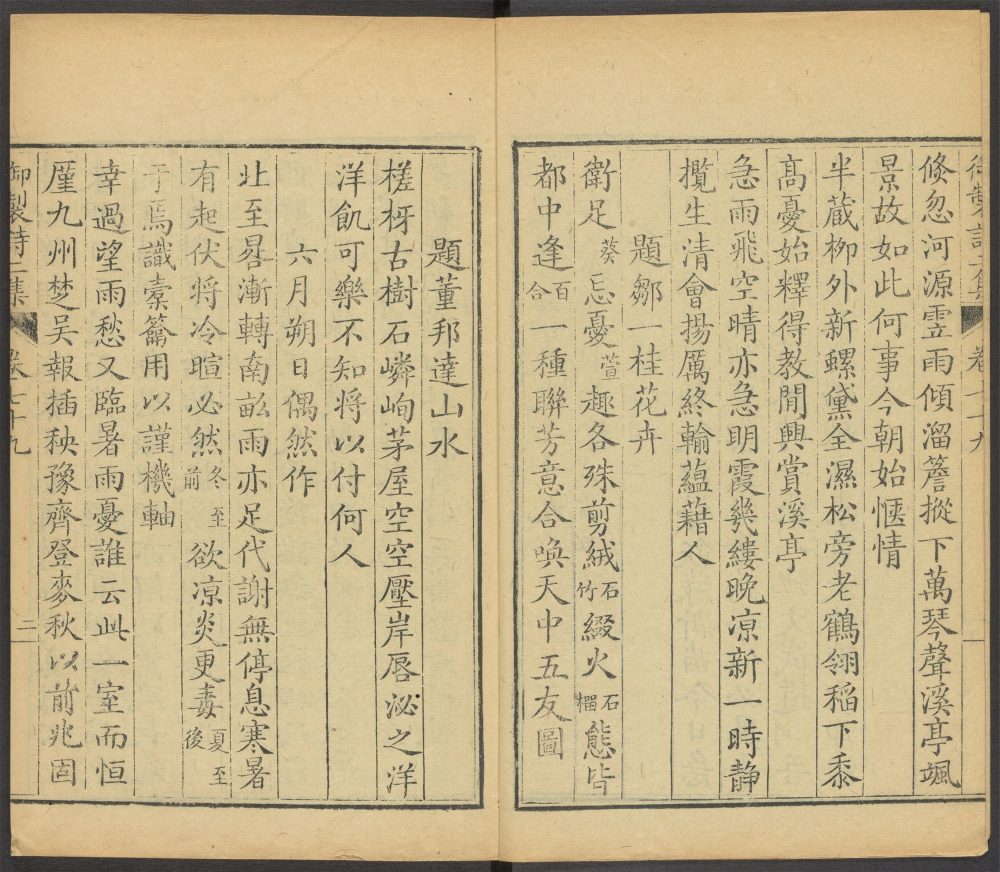 御製詩二集 卷七十九 一
倏忽河源霊雨傾溜簷摐下萬琴聲溪亭颯
景故如此何事今朝始愜情
半蔵栁外新螺黛全濕松旁老鶴翎稻下黍
髙憂始釋得教閒興賞溪亭
急雨飛空晴亦急明霞幾縷晚凉新一時静
攬生清會揚厲終輸藴藉人
題鄒一桂花卉
衛足葵忘憂萱趣各殊剪絨石竹綴火石榴態皆
都中逢百合一種聯芳意合喚天中五友圖
題董邦達山水
槎枒古樹石嶙峋茅屋空空壓岸唇泌之洋
洋飢可樂不知將以付何人
六月朔日偶然作
北至晷漸轉南訛雨亦足代謝無停息寒暑
有起伏将冷暄必然冬至前欲凉炎更毒夏至後
于焉識橐籥用以謹機軸
幸過望雨愁又臨暑雨憂誰云此一室而恒
廑九州楚吳報插秧豫齊登麥秋以前兆固
御製詩二集 卷七十九 二